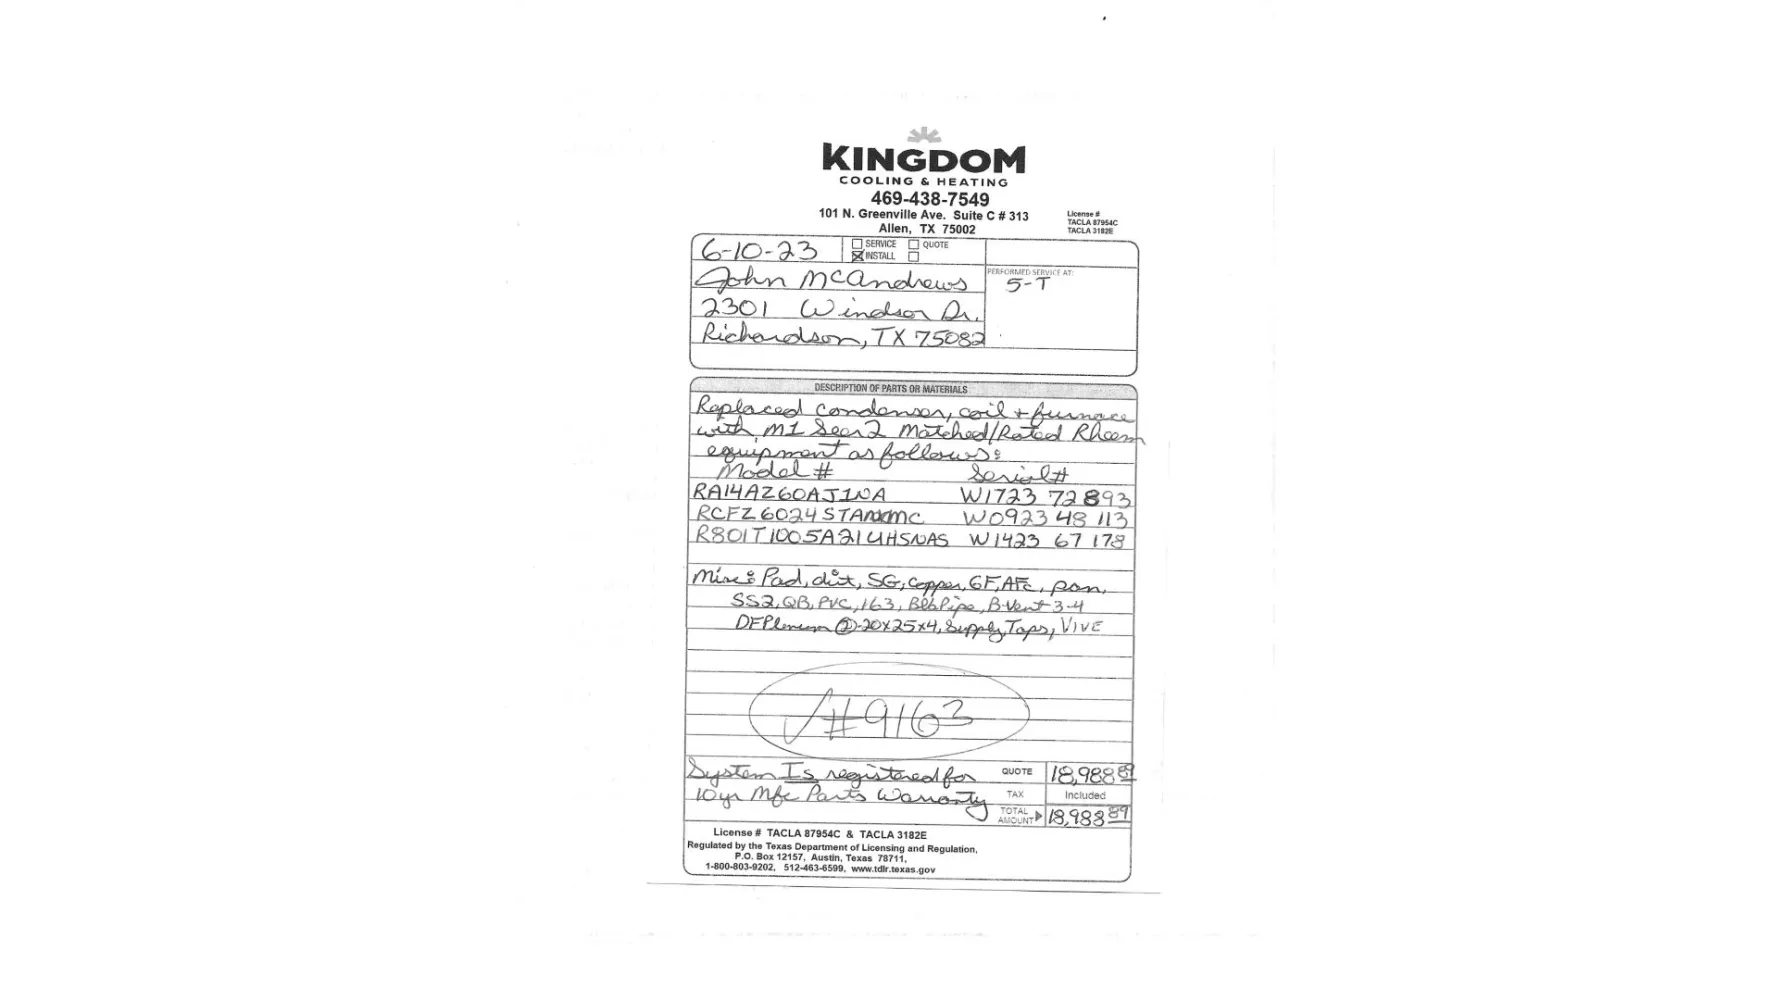 KINGDOM
COOLING & HEATING
469-438-7549
101 N. Greenville Ave. Suite C # 313
Allen, TX 75002
License #
TACLA 87954C
TACLA 3182E
6-10-23
SERVICE QUOTE
INSTALL
John McAndrews
2301 Windsor Dr.
Richardson, TX 75082
PERFORMED SERVICE AT:
5-T
DESCRIPTION OF PARTS OR MATERIALS
Replaced condenser, coil + furnace
with M1 Seer2 Matched/Rated Rheem
equipment as follows:
Model # Serial#
RA14AZ60AJ1NA W1723 72893
RCFZ6024STAMC W0923 48 113
R801T1005A21UHSNAS W1423 67 178
Misc: Pad, dist, SG, copper, GF, AFc, pan,
SS2, QB, PVC, 163, Blk Pipe, B-Vent 3-4
DFPlenum 2-20x25x4, Supply, Taps, VIVE
✓#9163
System Is registered for
10yr Mfc Parts Warranty
QUOTE 18,988 89
TAX Included
TOTAL AMOUNT 18,988 89
License # TACLA 87954C & TACLA 3182E
Regulated by the Texas Department of Licensing and Regulation,
P.O. Box 12157, Austin, Texas 78711,
1-800-803-9202, 512-463-6599, www.tdlr.texas.gov